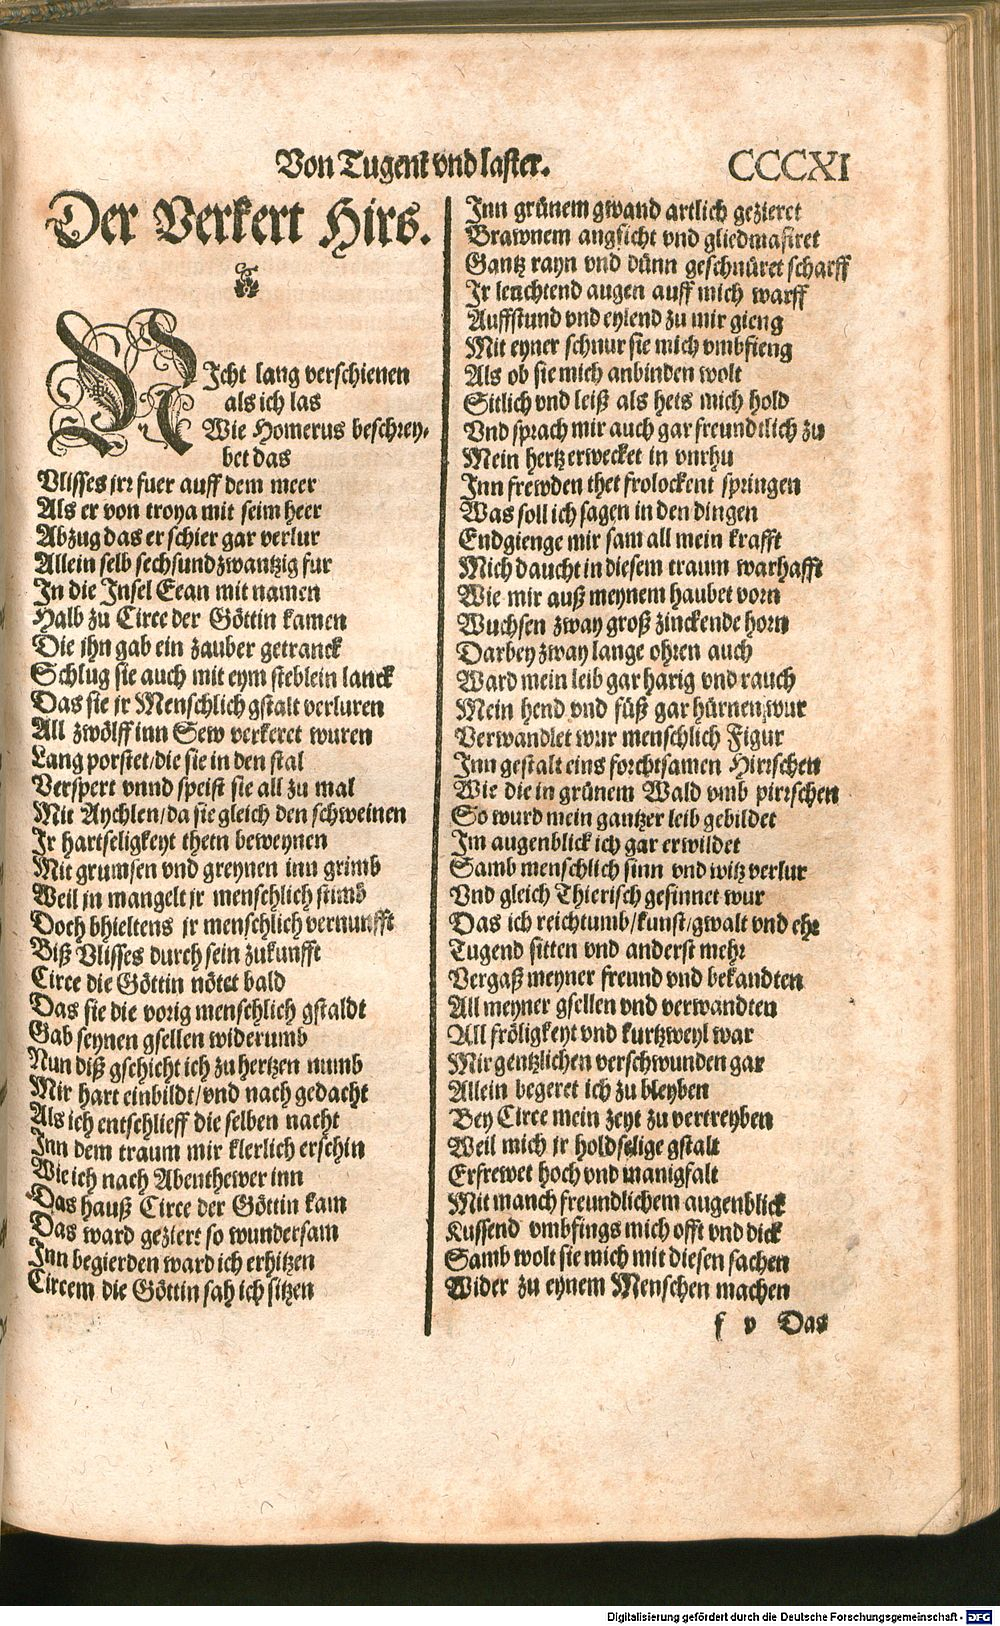 Von Tugent vnd laster.
CCCXI
Der Verkert Hirs.
NIcht lang verschienen
als ich las
Wie Homerus beschrey-
bet das
Vlisses jrr fuer auff dem meer
Als er von troya mit seim heer
Abzug das er schier gar verlur
Allein selb sechsundzwantzig fur
In die Insel Eean mit namen
Halb zu Circe der Göttin kamen
Die jhn gab ein zauber getranck
Schlug sie auch mit eym steblein lanck
Das sie jr Menschlich gstalt verluren
All zwölff inn Sew verkeret wuren
Lang porstet/die sie in den stal
Verspert vnnd speist sie all zu mal
Mit Aychlen/da sie gleich den schweinen
Ir hartseligkeyt thetn beweynen
Mit grumsen vnd greynen inn grimb
Weil jn mangelt jr menschlich stimb
Doch bhieltens jr menschlich vernunfft
Biß Vlisses durch sein zukunfft
Circe die Göttin nötet bald
Das sie die vorig menschlich gstaldt
Gab seynen gsellen widerumb
Nun diß gschicht ich zu hertzen numb
Mir hart einbildt/vnd nach gedacht
Als ich entschlieff die selben nacht
Inn dem traum mir klerlich erschin
Wie ich nach Abenthewer inn
Das hauß Circe der Göttin kam
Das ward geziert so wundersam
Inn begierden ward ich erhitzen
Circem die Göttin sah ich sitzen
Inn grünem gwand artlich gezieret
Brawnem angsicht vnd gliedmasiret
Gantz rayn vnd dünn geschnüret scharff
Ir leuchtend augen auff mich warff
Auffstund vnd eylend zu mir gieng
Mit eyner schnur sie mich vmbfieng
Als ob sie mich anbinden wolt
Sitlich vnd leiß als hets mich hold
Vnd sprach mir auch gar freundtlich zu
Mein hertz erwecket in vnrhu
Inn frewden thet frolockent springen
Was soll ich sagen in den dingen
Endgienge mir sam all mein krafft
Mich daucht in diesem traum warhafft
Wie mir auß meynem haubet vorn
Wuchsen zway groß zinckende horn
Darbey zway lange ohren auch
Ward mein leib gar harig vnd rauch
Mein hend vnd füß gar hürnen wur
Verwandlet wur menschlich Figur
Inn gestalt eins forchtsamen Hirrschen
Wie die in grünem Wald vmb pirrschen
So wurd mein gantzer leib gebildet
Im augenblick ich gar erwildet
Samb menschlich sinn vnd witz verlur
Vnd gleich Thierisch gesinnet wur
Das ich reichtumb/kunst/gwalt vnd ehr
Tugend sitten vnd anderst mehr
Vergaß meyner freund vnd bekandten
All meyner gsellen vnd verwandten
All fröligkeyt vnd kurtzweyl war
Mir gentzlichen verschwunden gar
Allein begeret ich zu bleyben
Bey Circe mein zeyt zu vertreyben
Weil mich jr holdselige gstalt
Erfrewet hoch vnd manigfalt
Mit manch freundlichem augenblick
Kussend vmbfings mich offt vnd dick
Samb wolt sie mich mit diesen sachen
Wider zu eynem Menschen machen
f v Das
Digitalisierung gefördert durch die Deutsche Forschungsgemeinschaft - DFG